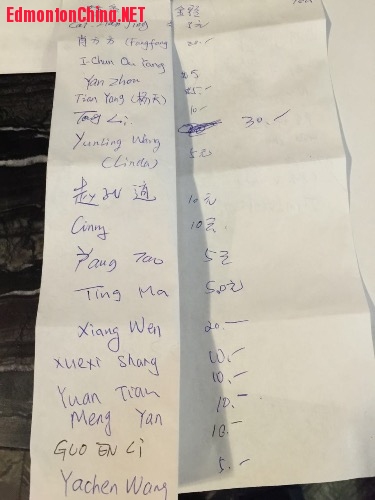 EdmontonChina.NET
金额
5元
肖方方 (Fangfang 20.-
I-Chun Ou Yang
Yan Zhou 5
Tian Yang (杨天) 25.-
Li 10.- 30.-
Yunling Wang 5元
(Linda)
赵 道 10元
Cinny 10元
Yang Tao 5元
Ting Ma 50元
Xiang Wen 20.—
Xuexi Shang 10.-
Yuan Tian 10.-
Meng Yan 10.-
GUO EN Li 10.-
Yachen Wang 5.-